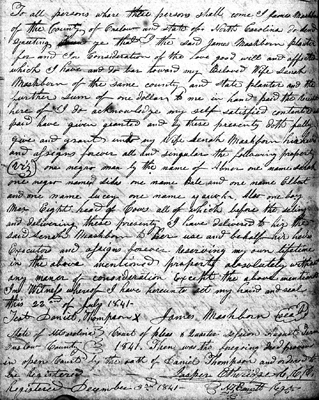 To all persons where these persons shall come I James Mashborn
of the County of Onslow and State of North Carolina do send
Greeting ye that I the said James Mashborn planter
for and In Consideration of the love good will and affection
which I have and do bar toward my Beloved Wife Senah
Mashborn of the same county and State planter and the
further sum of one dollar to me in hand paid the receipt
here of I do acknowledge my self satisfied contented
paid have given granted and by these presents doth fully
give and grant unto my Wife Senah Mashborn his heirs
and assigns forever all and singular the following property
one negro man by the name of Abner one name
one negro named Silas one name Kate and one name
and one name Lucey one name also one boy
Mose Eight head of Cows all of which before the
and delivering these presents I have delivered to hir the
said Senah Mashborn
Executors and assigns forever Reserving my own lifetime
in the above mentioned property absolutely without
any maner of consideration Except the above mention
In Witness whereof I have hereunto set my hand and seal
this 22nd July 1841
Test Daniel Thompson X James Mashborn (Seal)
State of N Carolina Court of pleas & Quarter Session
Onslow County 1841. Then was the foregoing
in open Court by the oath of Daniel Thompson and ordered to
be Registered Jasper Etheridge
Registered December 3rd 1841